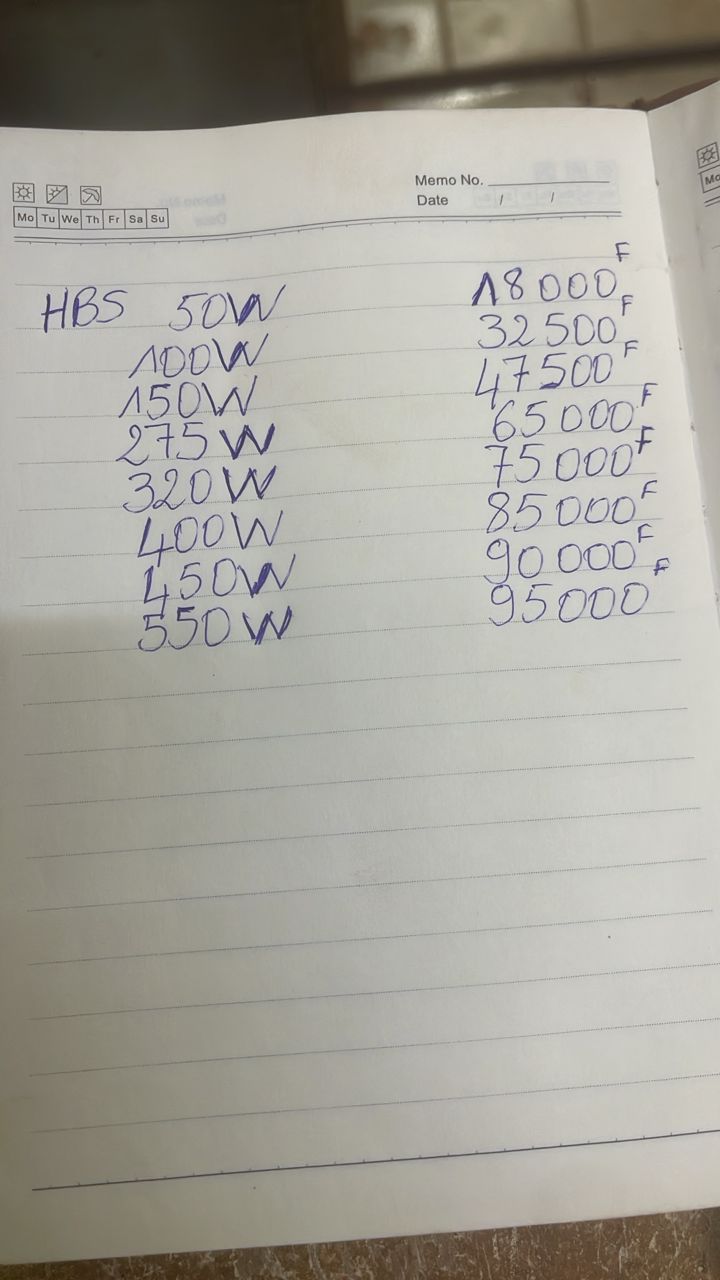 Memo No.
Date / /
Mo Tu We Th Fr Sa Su
HBS 50W 18 000F
100W 32 500F
150W 47 500F
275W 65 000F
320W 75 000F
400W 85 000F
450W 90 000F
550W 95 000F
Mo